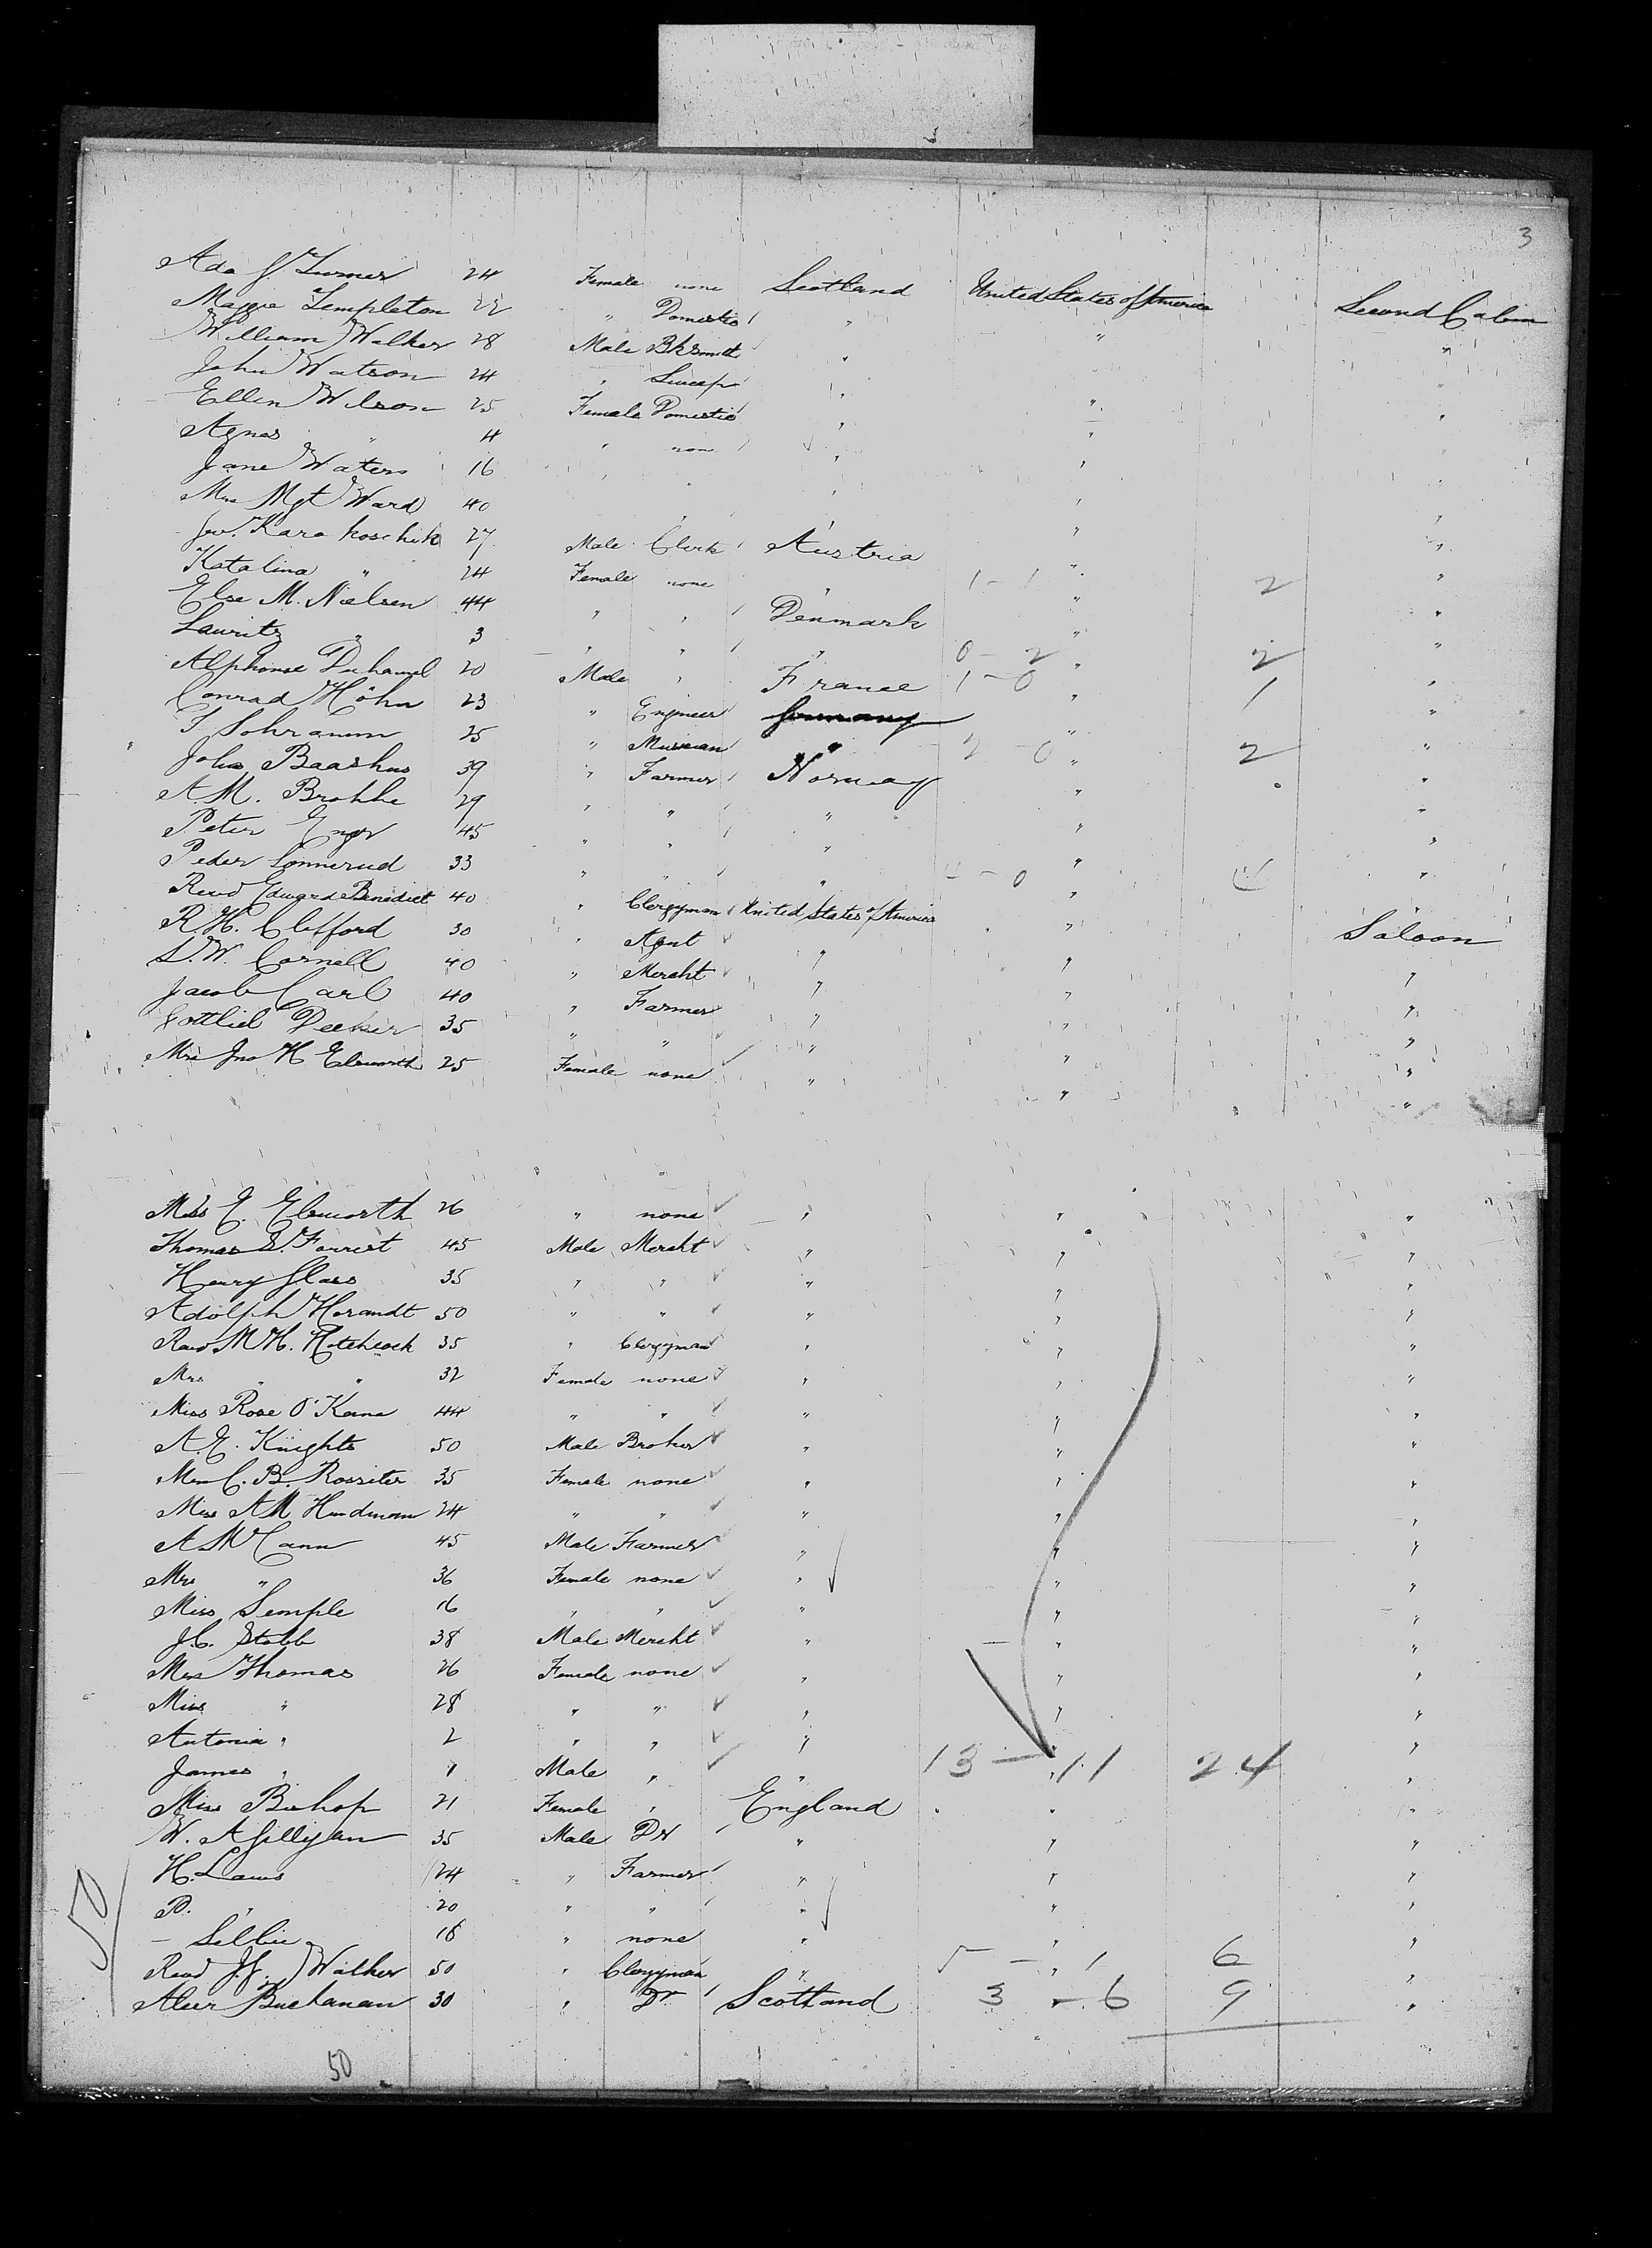 3
Ada J Turner 24 Female none Scotland United States of America Second Cabin
Maggie Templeton 22 " Domestic " " "
William Walker 28 Male Bksmith " "
John Watson 24 " " " "
Ellen Wilson 25 Female Domestic " " "
Agnes " 4 " none " "
Jane Waters 16 " " " " "
Mrs Mgt Ward 40 " " " "
27 Male Clerk Austria " "
Katalina " 24 Female none " 1 - 1 " 2 "
Else M. Nielsen 44 " " Denmark " "
Lauritz " 3 " " " 0 - 2 " 2 "
Alphonse Duhamel 20 Male " France 1 - 0 " 1 "
Conrad Höhn 23 " Engineer Germany " "
25 " Musician " 2 - 0 " 2 "
John Baashus 39 " Farmer Norway " "
A. M. 29 " " " " "
Peter 45 " " " " "
Peder Lonnerud 33 " " " - 0 " "
Revd Edward Benedict 40 " Clergyman United States of America " Saloon
R. H. Clifford 30 " Agent " " "
S. W. Cornell 40 " Mercht " " "
Jacob Carl 40 " Farmer " " "
Gottlieb Decker 35 " " " " "
Mrs Jno H Elsworth 25 Female none " " "
Miss E. Elsworth 26 " none " " "
Thomas S. Forrest 45 Male Mercht " " "
Henry Glass 35 " " " " "
Adolph Horandt 50 " " " " "
Revd M H. Hotchcock 35 " Clergyman " " "
Mrs " " 32 Female none " " "
Miss Rose O'Kane 44 " " " " "
A. E. Knights 50 Male Broker " " "
Mrs C. B. Rossiter 35 Female none " " "
Miss A M Hindman 24 " " " " "
A McCann 45 Male Farmer " " "
Mrs " 36 Female none " " "
Miss Semple 16 " " " " "
J. C. Stabb 38 Male Mercht " " "
Mrs Thomas 26 Female none " " "
Miss " 28 " " " " "
Antonia " 2 " " " " "
James " 1 Male " " 13 - 11 24 "
Miss Bishop 21 Female " England " "
W. A Gilligan 35 Male Dr " " "
H. Laws 24 " Farmer " " "
P. " 20 " " " " "
- 18 " none " " "
Revd J. J. Walker 50 " Clergyman " 5 - 1 6 "
Alexr Buchanan 30 " Dr Scotland 3 - 6 9 "
50
50